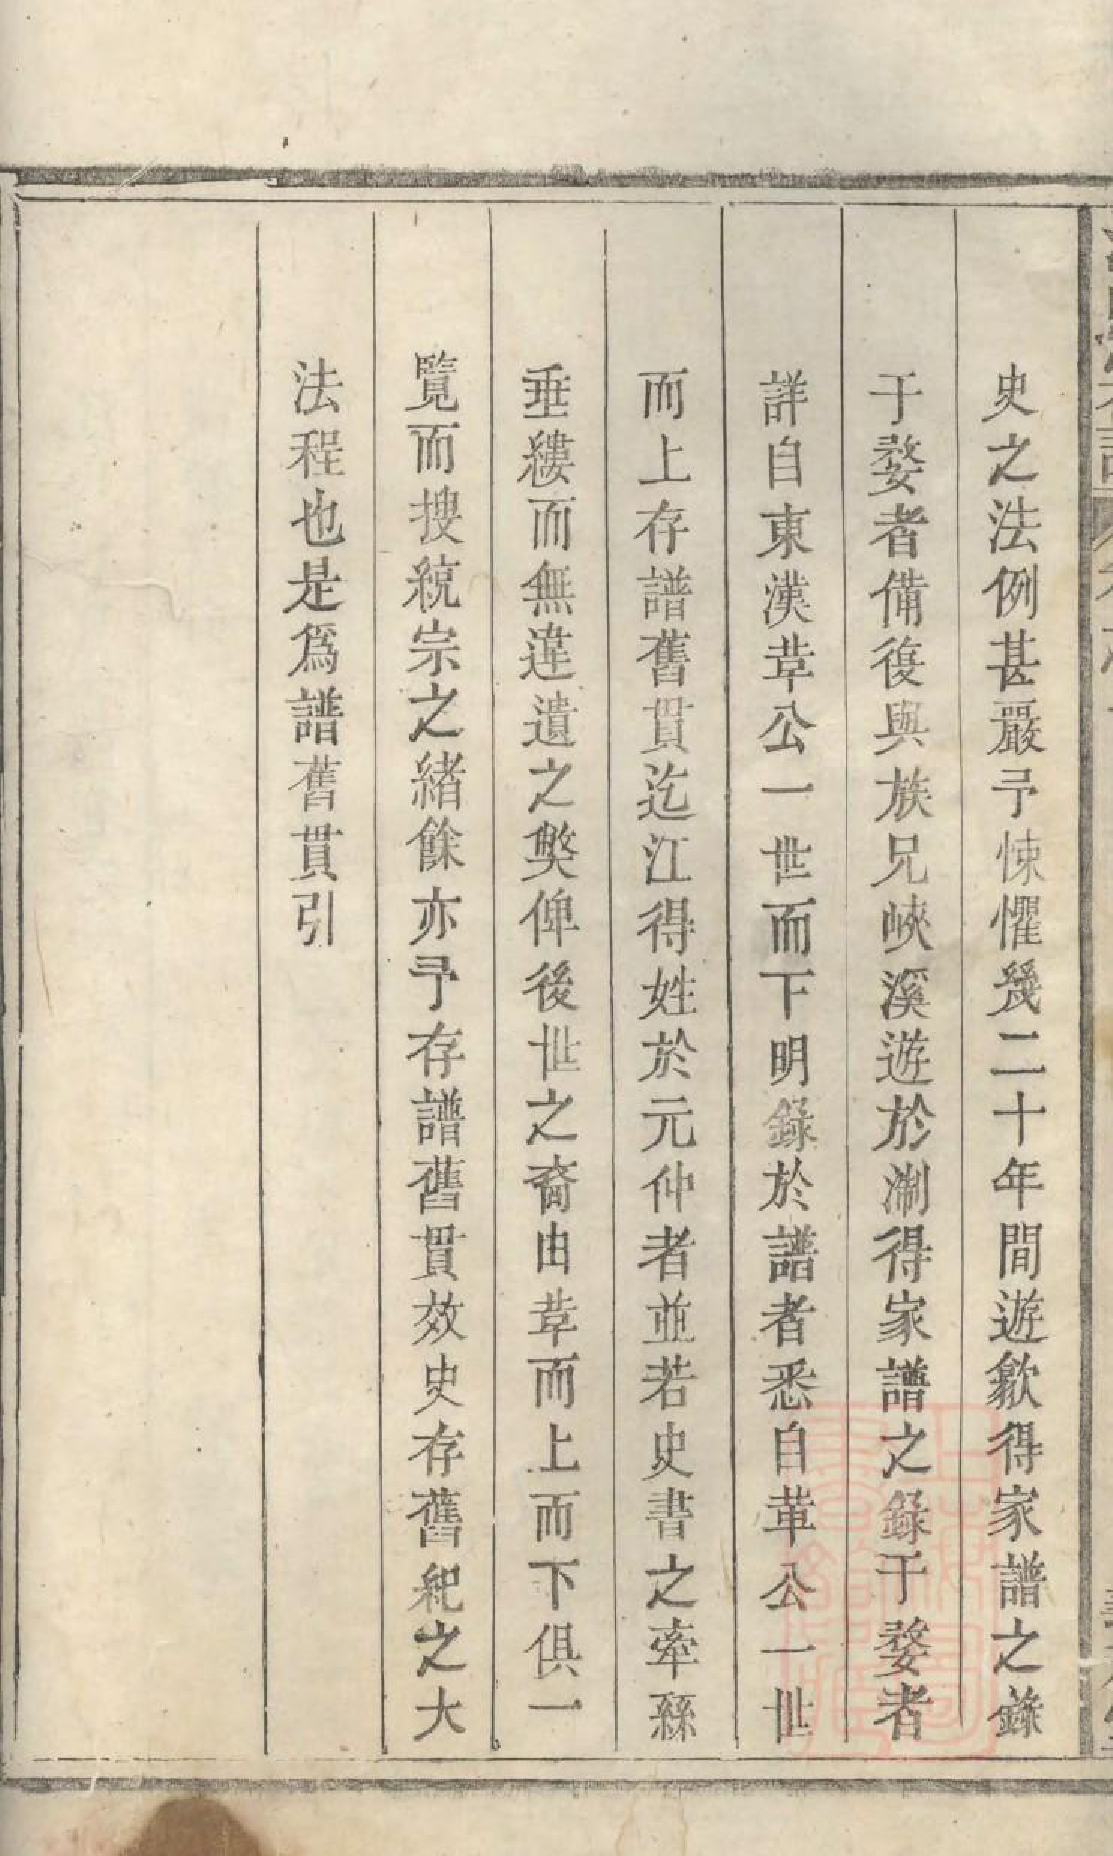 史之法例甚嚴予悚懼幾二十年間遊歙得家譜之錄
于婺者備復與族兄峽溪遊於淛得家譜之錄于婺者
詳自東漢葦公一世而下明錄於譜者悉自葦公一世
而上存譜舊貫迄江得姓於元仲者並若史書之牽緜
垂縷而無違遺之獘俾後世之裔由葦而上而下俱一
覽而搜統宗之緒餘亦予存譜舊貫效史存舊紀之大
法程也是爲譜舊貫引